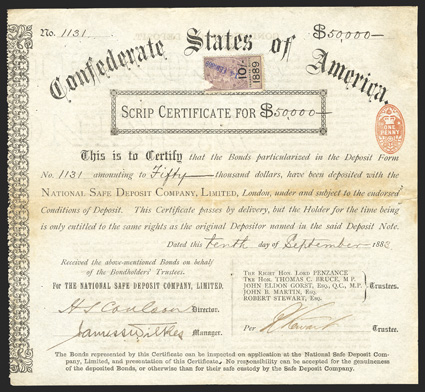 No. 1131
$50,000
Confederate States of America.
10/-
1889
SCRIP CERTIFICATE FOR $50,000
ONE PENNY
This is to Certify that the Bonds particularized in the Deposit Form
No. 1131 amounting to Fifty thousand dollars, have been deposited with the
NATIONAL SAFE DEPOSIT COMPANY, LIMITED, London, under and subject to the endorsed
Conditions of Deposit. This Certificate passes by delivery, but the Holder for the time being
is only entitled to the same rights as the original Depositor named in the said Deposit Note.
Dated this tenth day of September 1883
Received the above-mentioned Bonds on behalf
of the Bondholders' Trustees.
FOR THE NATIONAL SAFE DEPOSIT COMPANY, LIMITED.
H S Coulson Director.
James Wilkes Manager.
THE RIGHT HON. LORD PENZANCE
THE HON. THOMAS C. BRUCE, M.P.
JOHN ELDON GORST, ESQ., Q.C., M.P.
JOHN B. MARTIN, ESQ.
ROBERT STEWART, ESQ.
Trustees.
Per R Stewart Trustee.
The Bonds represented by this Certificate can be inspected on application at the National Safe Deposit Com-
pany, Limited, and presentation of this Certificate. No responsibility can be accepted for the genuineness
of the deposited Bonds, or otherwise than for their safe custody by the Safe Deposit Company.